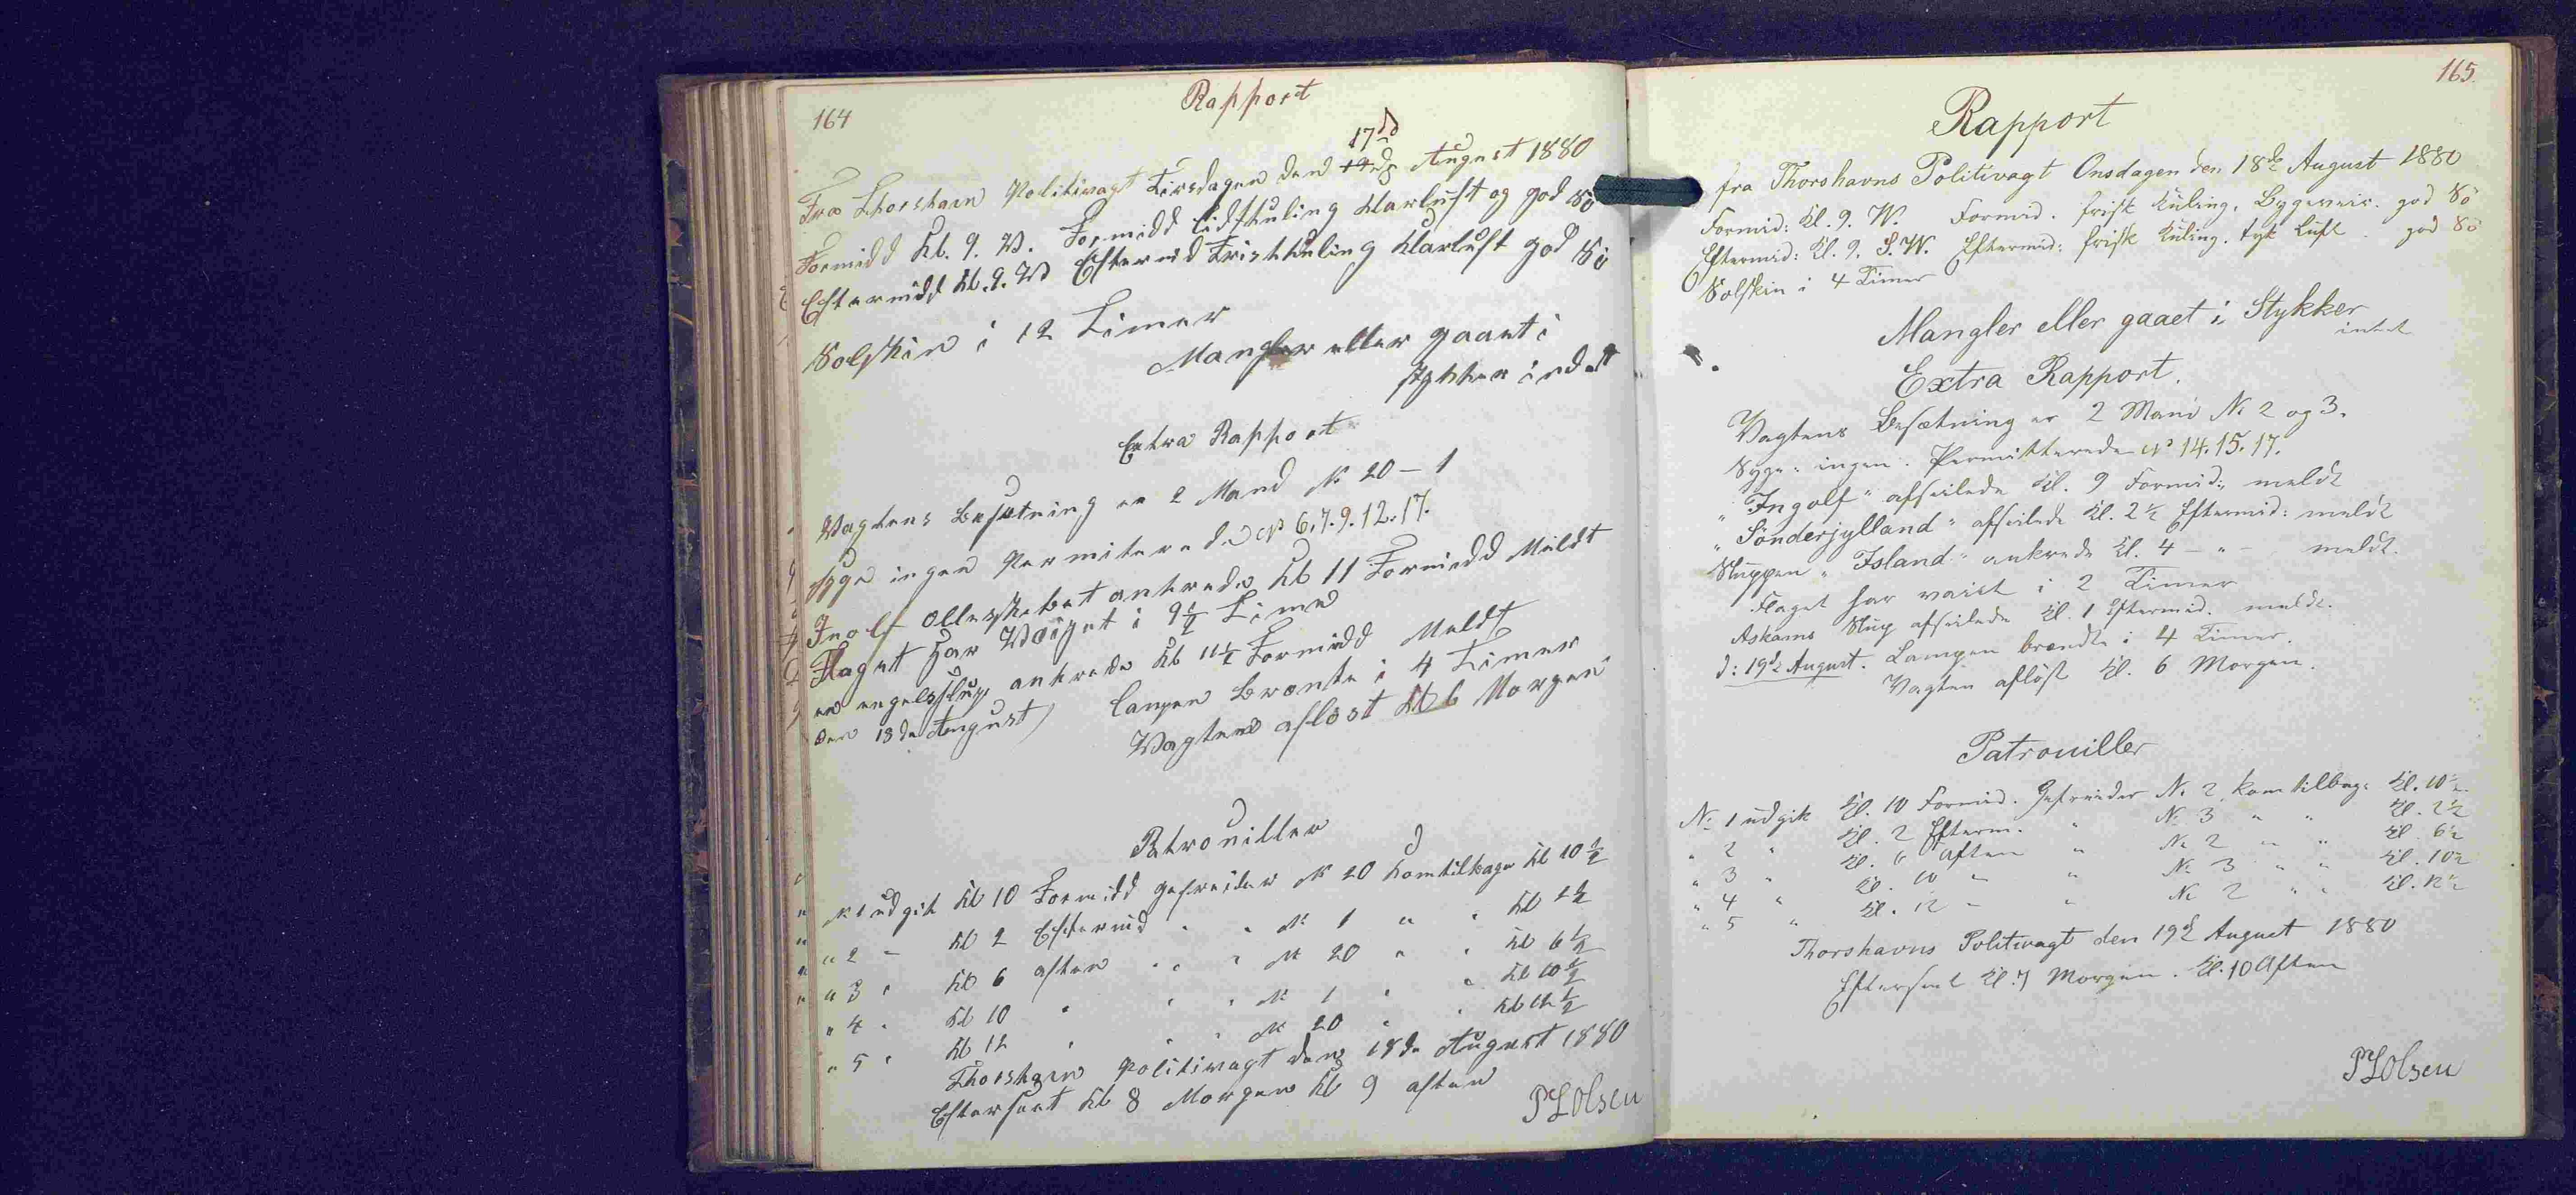 164
Rapport
17de
Fra Thorshavn Politivagt Tirsdagen den August 1880
Formidd Kl. 9. W. Formidd lidtkuling klarluft og god Sö
Eftermidd Kl. 9. W Eftermd Friskkuling klarluft god Sö
Solskin i 12 Timer
Mangler eller gaaet i
stykker indet
Extra Rapport
Vagtens besætning er 2 Mand № 20 - 1
syge ingen Permiterede № 6. 7. 9. 12. 17.
Inolf ankrede Kl 11 Formidd Meldt
Flaget har Vaiget i 9½ Time
en engelsslup ankrede Kl 11½ Formidd Meldt
den 18de August) lampen brænte i 4 Timer
Vagten aflöst Kl 6 Morgen
Patrouiller
№ 1 udgik Kl 10 Formidd gefreider № 20 komtilbage Kl 10½
" 2 " Kl 2 Eftermd " " № 1 " " Kl 2½
" 3 " Kl 6 aften " " № 20 " " Kl 6½
" 4 " Kl 10 " " " № 1 " " Kl 10½
" 5 " Kl 12 " " " № 20 " " Kl 12½
Thorshavn politivagt den 18de August 1880
Efterseet Kl 8 Morgen Kl 9 aften
PLOlsen
165.
Rapport
fra Thorshavns Politivagt Onsdagen den 18de August 1880
Formid: Kl. 9. W. Formid. frisk Kuling, Bygeveir. god Sö
Eftermid: Kl. 9. S.W. Eftermid: frisk Kuling. tyk Luft. god Sö
Solskin i 4 Timer
Mangler eller gaaet i Stykker
intet
Extra Rapport.
Vagtens Besætning er 2 Mand № 2 og 3.
Syge: ingen. Permitterede № 14. 15. 17.
"Ingolf" afseilede Kl. 9 Formid:, meldt
"Sönderjylland" afseilede Kl. 2½ Eftermid: meldt
Sluppen "Island" ankrede Kl. 4 - " - meldt.
Flaget har vaiet i 2 Timer
Askams Slup afseilede Kl. 1 Eftermid. meldt.
d: 19de August. Lampen brændte i 4 Timer.
Vagten aflöst Kl. 6 Morgen.
Patrouiller
№ 1 udgik Kl. 10 Formid. Gefreider № 2 kom tilbage Kl. 10½
" 2 " Kl. 2 Efterm. " № 3 " " Kl. 2½
" 3 " Kl. 6 Aften " № 2 " " Kl. 6½
" 4 " Kl. 10 " " № 3 " " Kl. 10½
" 5 " Kl. 12 " " № 2 " " Kl. 12½
Thorshavns Politivagt den 19de August 1880
Efterseet Kl. 7 Morgen. Kl. 10 Aften
PLOlsen